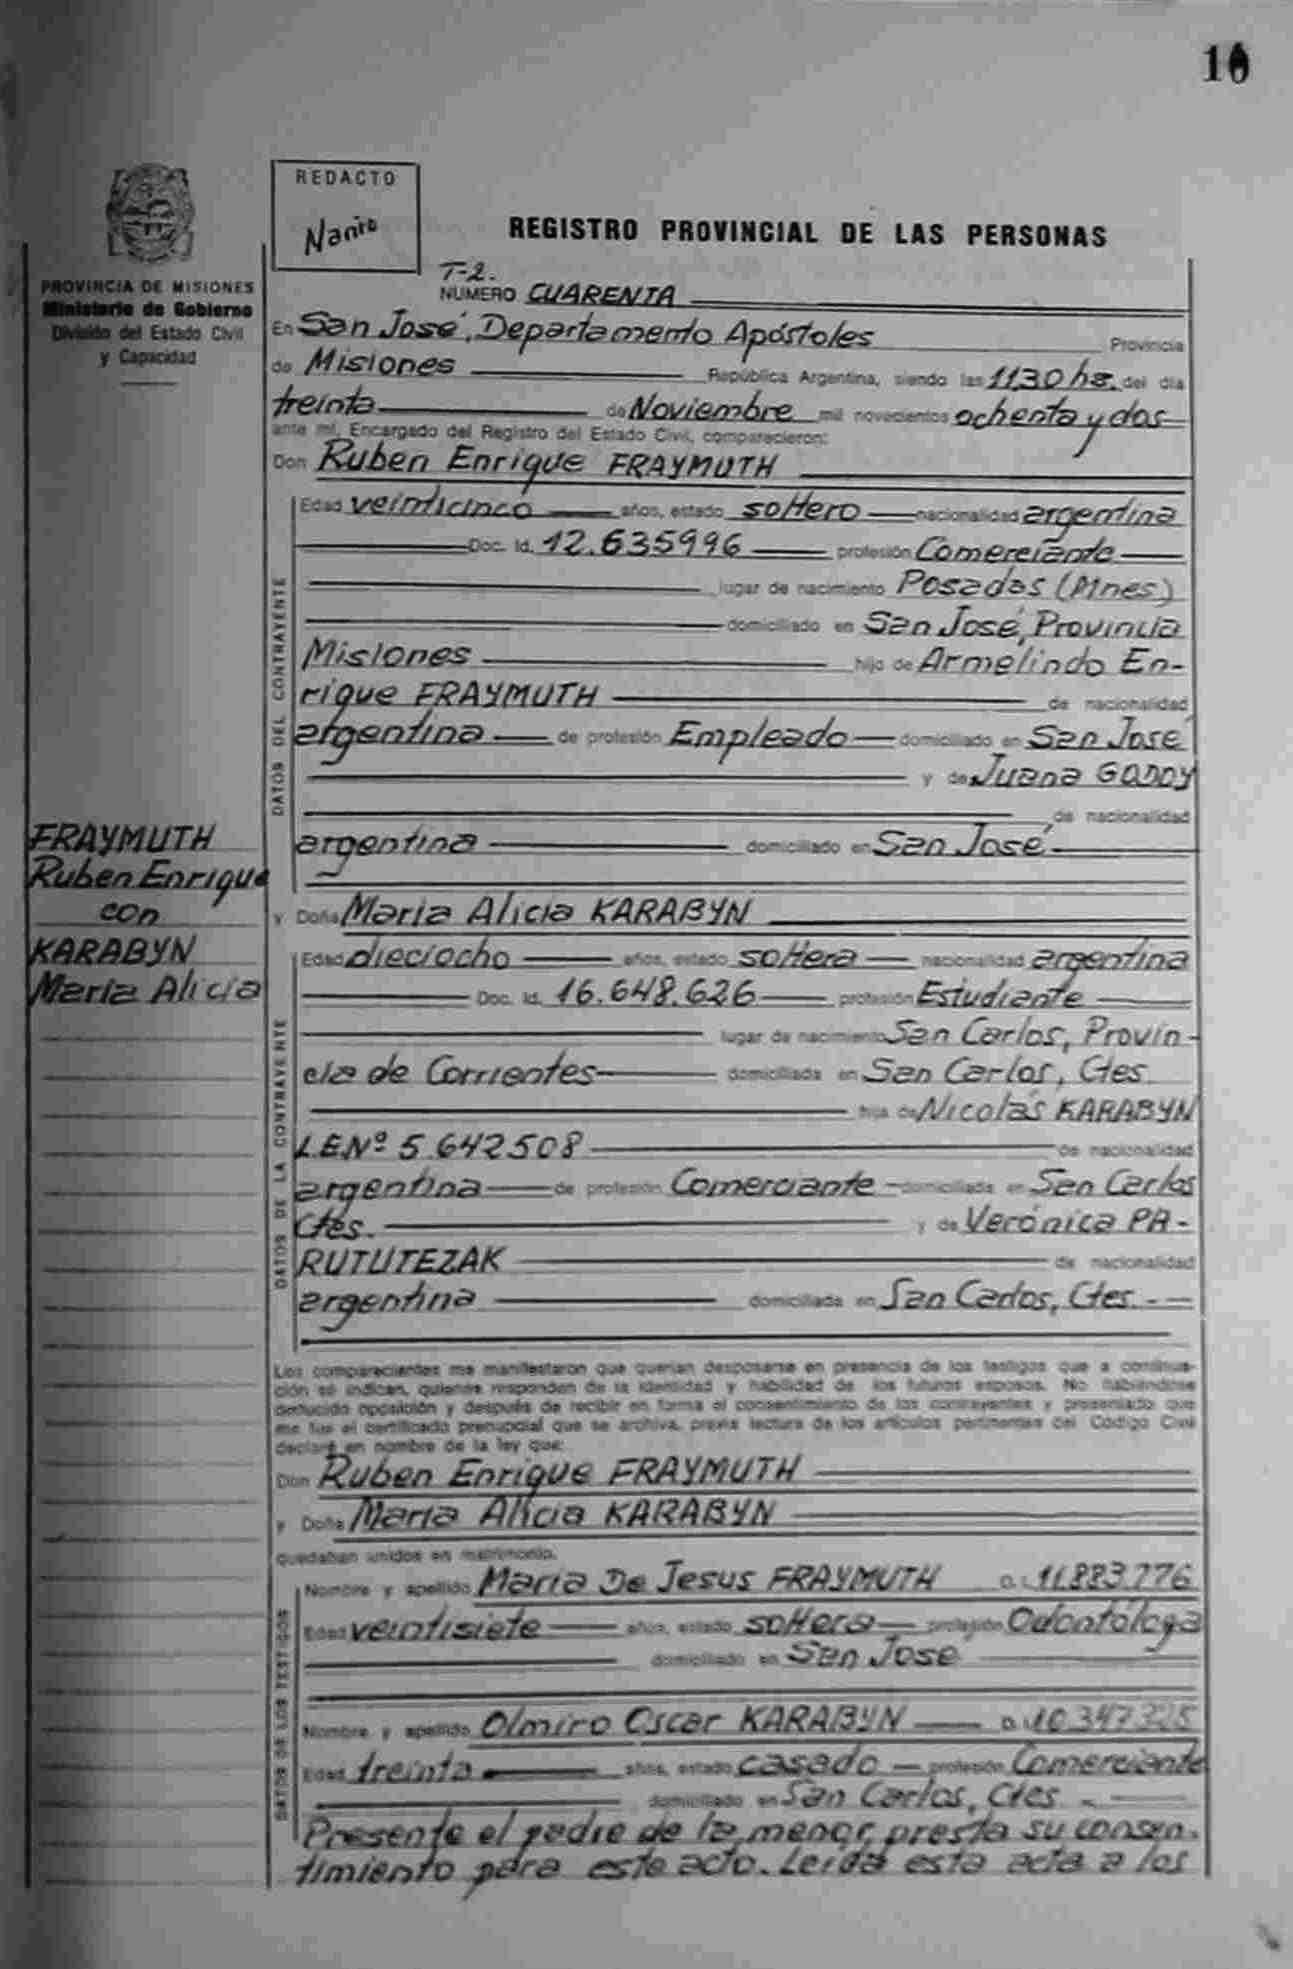 10
REDACTO
Nanio
REGISTRO PROVINCIAL DE LAS PERSONAS
PROVINCIA DE MISIONES
Ministerio de Gobierno
División del Estado Civil
y Capacidad
T-2.
NUMERO CUARENTA
En San José, Departamento Apóstoles Provincia
de Misiones República Argentina, siendo las 11.30 hs. del día
treinta de Noviembre mil novecientos ochenta y dos
ante mí, Encargado del Registro del Estado Civil, comparecieron:
Don Ruben Enrique FRAYMUTH
DATOS DEL CONTRAYENTE
Edad veinticinco años, estado soltero nacionalidad argentina
Doc. Id. 12.635996 profesión Comerciante
lugar de nacimiento Posadas (Mnes)
domiciliado en San José, Provincia
Misiones hijo de Armelindo En-
rique FRAYMUTH de nacionalidad
argentina de profesión Empleado domiciliado en San José
y de Juana GODOY
de nacionalidad
argentina domiciliado en San José
FRAYMUTH
Ruben Enrique
con
KARABYN
María Alicia
y Doña María Alicia KARABYN
DATOS DE LA CONTRAYENTE
Edad dieciocho años, estado soltera nacionalidad argentina
Doc. Id. 16.648.626 profesión Estudiante
lugar de nacimiento San Carlos, Provin-
cia de Corrientes domiciliada en San Carlos, Ctes
hija de Nicolás KARABYN
L.E.Nº 5.642508 de nacionalidad
argentina de profesión Comerciante domiciliado en San Carlos
Ctes. y de Verónica PA-
RUTUTEZAK de nacionalidad
argentina domiciliada en San Carlos, Ctes.-
Los comparecientes me manifestaron que querían desposarse en presencia de los testigos que a continua-
ción se indican, quienes responden de la identidad y habilidad de los futuros esposos. No habiéndose
deducido oposición y después de recibir en forma el consentimiento de los contrayentes y presentado que
me fue el certificado prenupcial que se archiva, previa lectura de los artículos pertinentes del Código Civil
declaré en nombre de la ley que:
Don Ruben Enrique FRAYMUTH
y Doña María Alicia KARABYN
quedaban unidos en matrimonio.
DATOS DE LOS TESTIGOS
Nombre y apellido María De Jesus FRAYMUTH D.I. 11.883.776
Edad veintisiete años, estado soltera profesión Odontóloga
domiciliado en San José
Nombre y apellido Olmiro Oscar KARABYN D.I. 10.347.325
Edad treinta años, estado casado profesión Comerciante
domiciliado en San Carlos, Ctes.
Presente el padre de la menor, presta su consen-
timiento para este acto. Leída esta acta a los